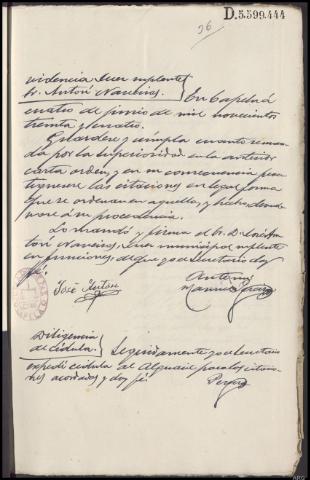 D.5.599.444
26
videncia Juez suplente
Sr. Antón Naveiras. } En Capelá
cuatro de junio de mil novecientos
treinta y cuatro.
Guárdese y cumpla cuanto se man-
da por la Superioridad en la anterior
carta orden, y en su consecuencia prac-
tiquense las citaciones en legal forma
que se ordenan en aquella, y hecho devuel-
vase a su procedencia.
Lo mandó y firma el Sr. D. José An-
tón Naveiras, Juez municipal suplente
en funciones, de que yo el Secretario doy
fé.
José Antón
Antemí
Diligencia
de cédula. } Seguidamente yo el Secretario
expedí cédula al Alguacil para las citacio-
nes acordadas y doy fé.